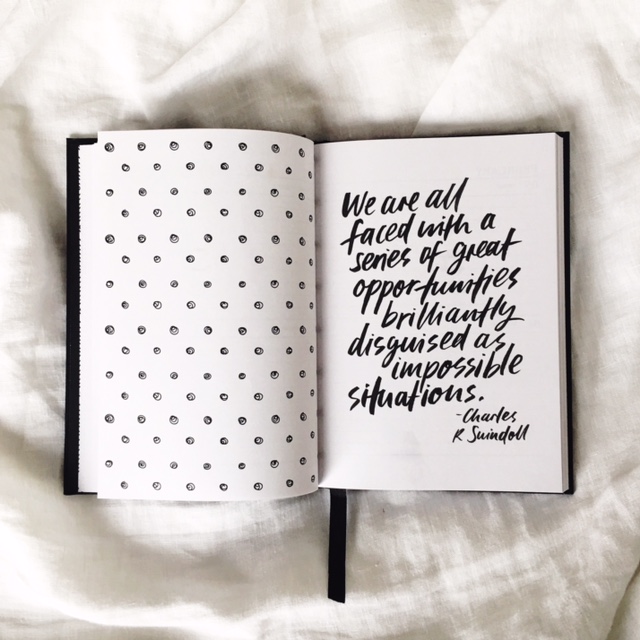 We are all
faced with a
series of great
opportunities
brilliantly
disguised as
impossible
situations.
-Charles
R Swindoll